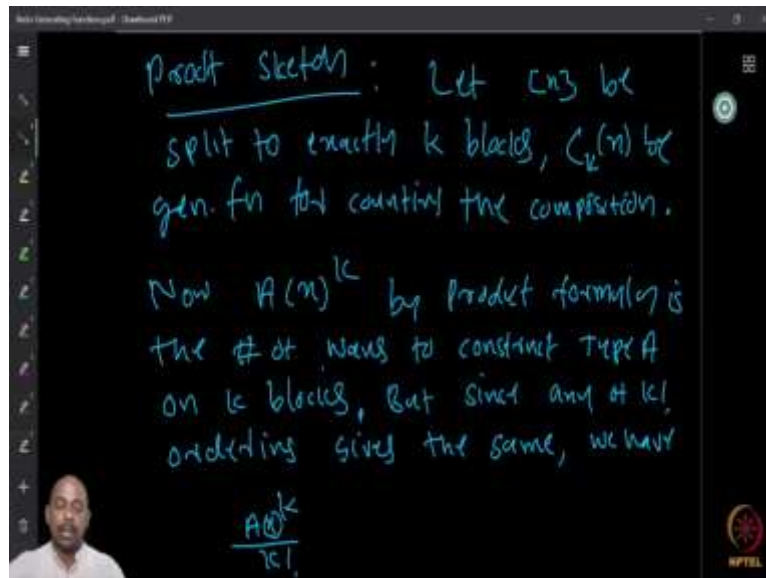 Proof Sketch : Let [n] be
split to exactly k blocks, C_k(x) be
gen. fn for counting the composition.
Now A(x)^k by product formula is
the # of ways to construct Type A
on k blocks, But since any of k!
ordering gives the same, we have
A(x)^k
k!
NPTEL